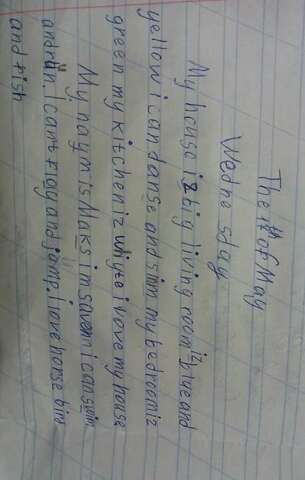 The of May
Wedne sday
My house iz big living room iz blue and
yellow i can danse and sim my bedroom iz
green my kitchen iz whyte i love my house
My naym is Maks im saven I can swim
and run. I cant flay and jamp. i ove horse
and fish